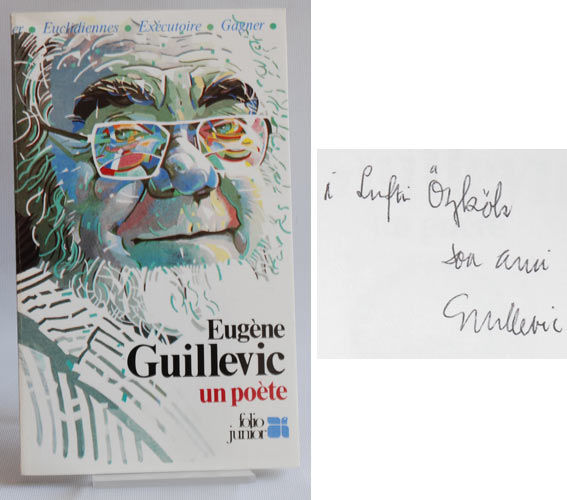 er • Euclidiennes • Exécutoire • Gagner •
Eugène
Guillevic
un poète
folio
junior
à Lufti Özkök
son ami
Guillevic